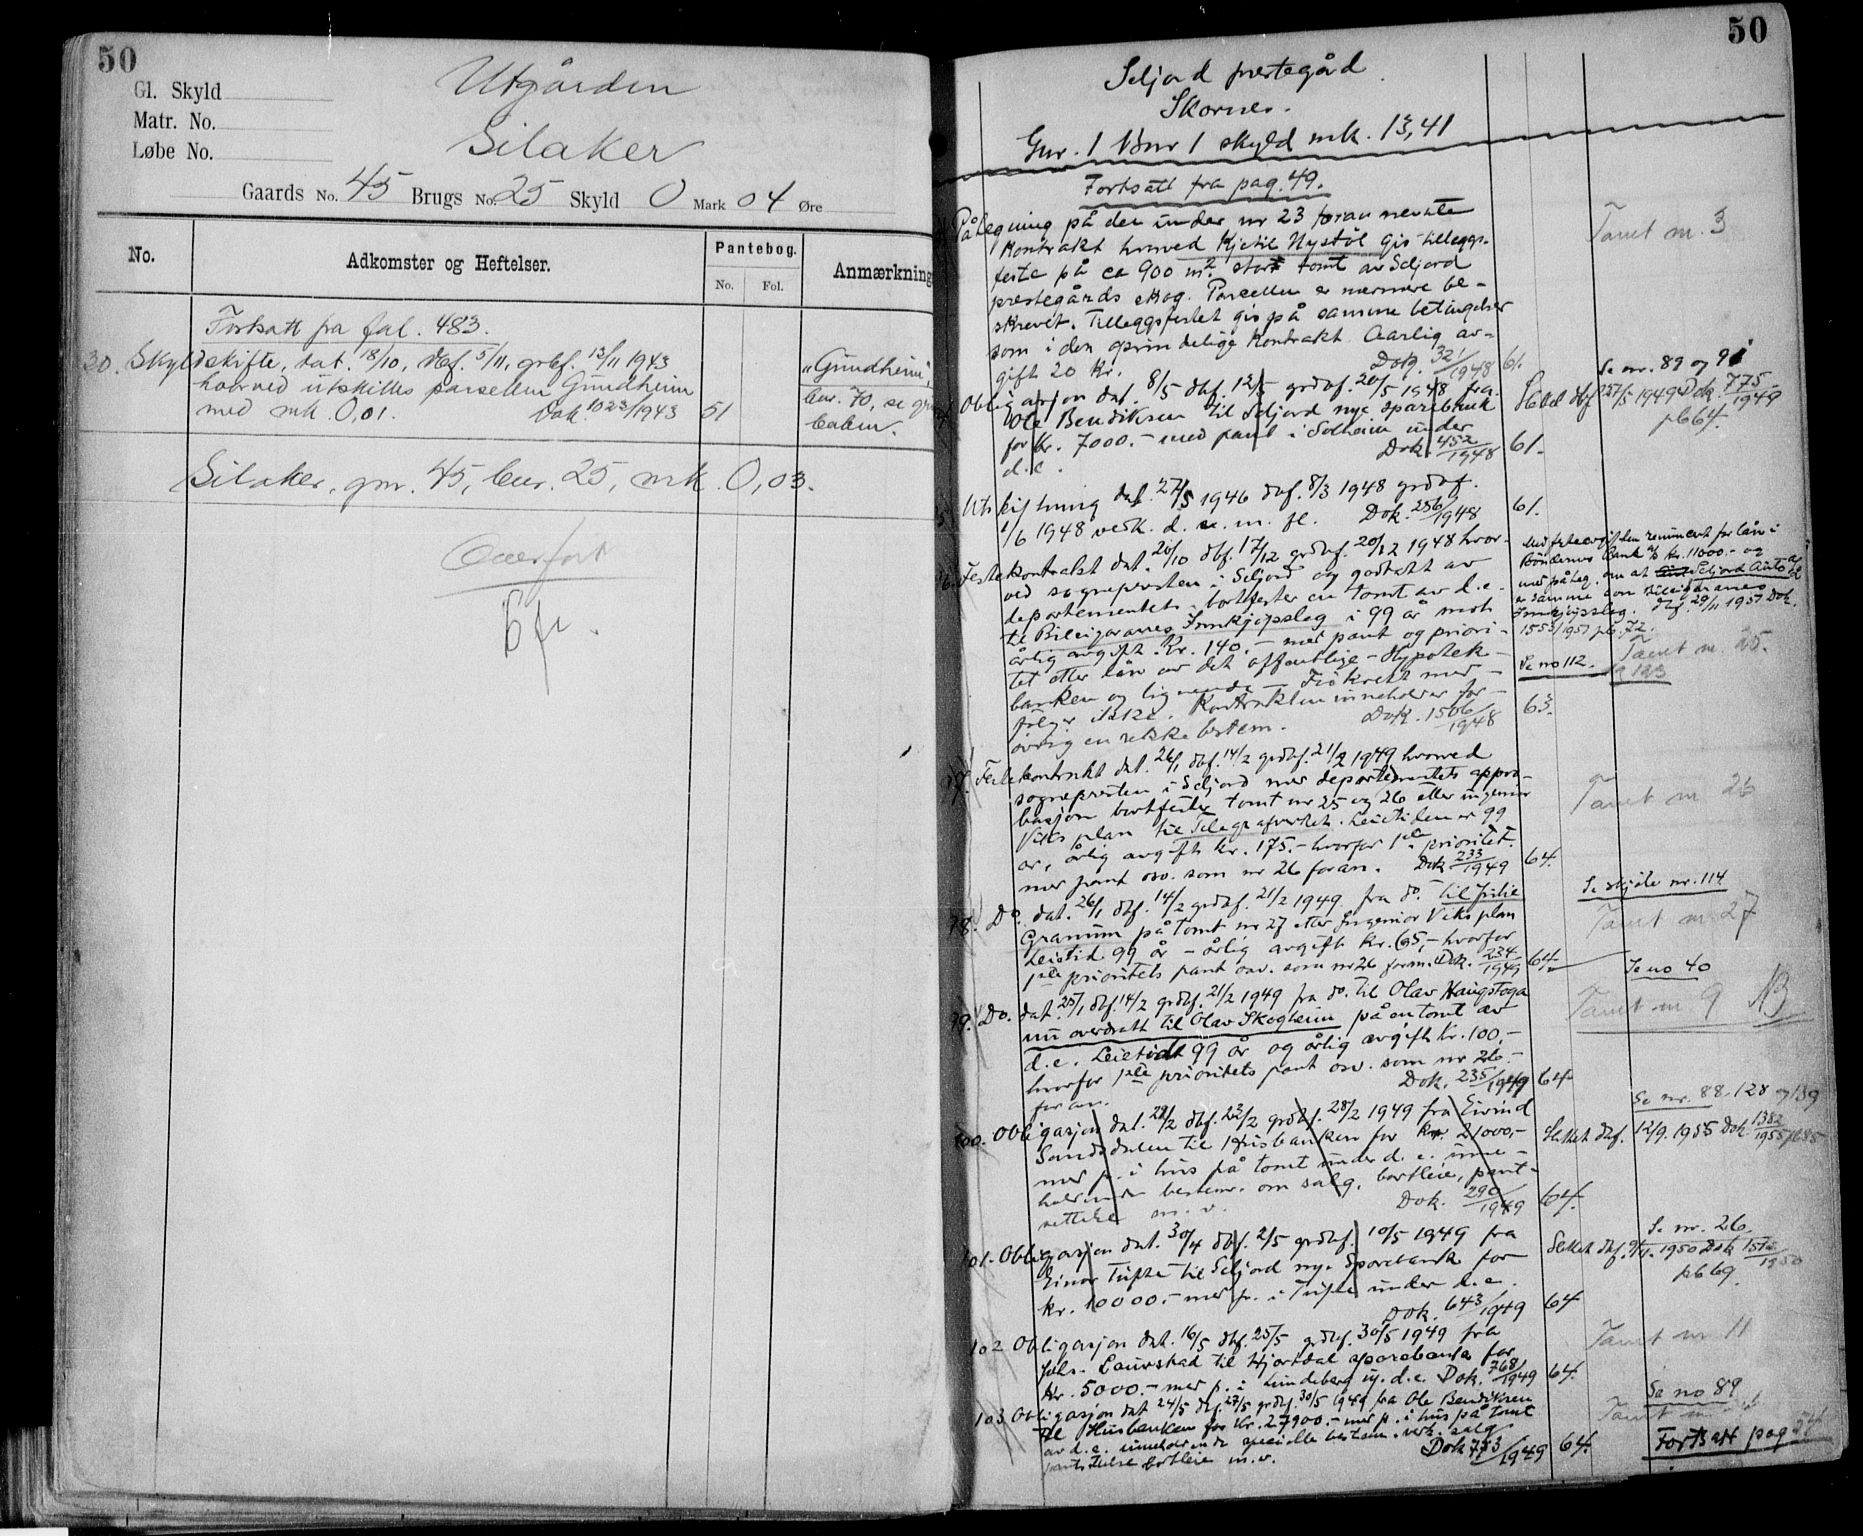 50
Gl. Skyld
Matr. No.
Løbe No.
Utgården
Silaker
Gaards No. 45 Brugs No. 25 Skyld 0 Mark 04 Øre
No.
Adkomster og Heftelser.
Pantebog.
No. Fol.
Anmærkning
Fortsatt fra fol. 483.
30. Skyldskifte, dat. 18/10, dbf. 5/11, grbf. 12/11 1943
hvorved utskilles parsellen Gundheim
med mk. 0,01. Dok. 1023/1943 51
"Gundheim",
bnr. 70, se
Silaker, gnr. 45, bnr. 25, mk. 0,03.
Overført
50
Seljord prestegård
Skornes.
Gnr. 1 Bnr 1 skyld mk. 13,41
Fortsatt fra pag. 49.
Påtegning på den under nr 23 foran nevnte
Kontrakt hvorved Kjetil Nystöl gis tilleggs-
feste på ca 900 m² stor tomt av Seljord
prestegårds skog. Parsellen er nærmere be-
skrevet. Tilleggsfestet gis på samme betingelser
som i den oprindelige Kontrakt. Aarlig av-
gift 20 kr. Dok. 321/1948 61.
Tomt nr. 3
Obligasjon dat. 8/5 dbf. 12/5 grdbf. 20/5 1948 fra
Ole Bendiksen til Seljord nye sparebank
for kr. 7000.- med pant i Solheim under
d.e. Dok. 452/1948 61.
Se nr. 89 og 91
Slettet dbf 27/5 1949 Dok. 775/1949
pb 64.
Utskiftning dat. 27/5 1946 dbf. 8/3 1948 grdbf.
1/6 1948 vedk. d. e. m. fl. Dok. 256/1948 61.
Festekontrakt dat. 20/10 dbf. 17/12 grdbf. 20/12 1948 hvor-
ved sognepresten i Seljord og godtatt av
departementet bortfester en tomt av d.e.
til Bileigaranes Innkjøpslag i 99 år mot
årlig avgift kr. 140,- med pant og priori-
tet etter lån av det offentlige - Hypotek-
banken og lignende - Fiskerett med-
følger ikke. Kontrakten inneholder for-
øvrig en rekke bestem. Dok. 1506/1948 63.
Bøndernes Bank kr. 11000.- og
Seljord Auto
er samme som Bileigaranes
Innkjøpslag. dbf. 29/11 1951 Dok.
1553/1951 pb. 72.
Se no 112.
Tomt nr. 25.
97. Festekontrakt dat. 26/1 dbf. 14/2 grdbf. 21/2 1949 hvorved
sognepresten i Seljord med departementets appro-
basjon bortfester tomt nr 25 og 26 etter ingeniør
Viks plan til Telegrafverket. Leietiden er 99
år, årlig avgift kr. 175.- hvorfor 1ste prioritet.
med pant osv. som nr 26 foran. Dok 233/1949 64.
Tomt nr 26
98. Do. dat. 26/1 dbf. 14/2 grdbf. 21/2 1949 fra do. til Julie
Granum på tomt nr 27 etter Ingeniør Viks plan
Leietid 99 år - årlig avgift kr. 65,- hvorfor
1ste prioritets pant osv. som nr 26 foran. Dok. 234/1949 64.
Se skjöte nr. 114
Tomt nr 27
99. Do. dat. 25/1 dbf. 14/2 grdbf. 21/2 1949 fra do. til Olav Haugstoga
nu overdratt til Olav Skogheim på en tomt av
d.e. Leietid 99 år og årlig avgift kr. 100,-
hvorfor 1ste prioritets pant osv. som nr 26.-
foran. Dok. 235/1949 64
Se no 40
Tomt nr. 9
100. Obligasjon dat. 22/2 dbf. 23/2 grdbf. 28/2 1949 fra Eivind
Sandsdalen til Husbanken for kr. 21000,-
med p. i hus på tomt under d.e. inne-
holdende bestem. om salg, bortleie, pant-
settelse m.v. Dok. 290/1949 64.
Se nr. 88. 128 og 139
Slettet dbf. 12/9. 1955 Dok 1382/1955 pb 85
101. Obligasjon dat. 30/4 dbf. 2/5 grdbf. 10/5 1949 fra
Einar Tufte til Seljord nye Sparebank for
kr. 10000.- med p. i Tufte under d.e.
Dok. 643/1949 64
Se nr. 26.
Slettet dbf. 9/11. 1950 Dok 1512/1950
pb 69.
102 Obligasjon dat. 16/5 dbf. 25/5 grdbf. 30/5 1949 fra
Johs. Laurskad til Hjartdal sparebank for
kr. 5000.- med p. i Lundeberg u. d.e. Dok. 768/1949 64.
Tomt nr 11
103 Obligasjon dat 24/5 dbf 27/5 grdbf. 30/5 1949 fra Ole Bendiksen
til Husbanken for kr. 27900.- med p. i hus på tomt
av d.e. inneholdende specielle bestem. vedr. salg
pantsettelse bortleie m.v. Dok 773/1949 64.
Se no 89
Fortsatt pag